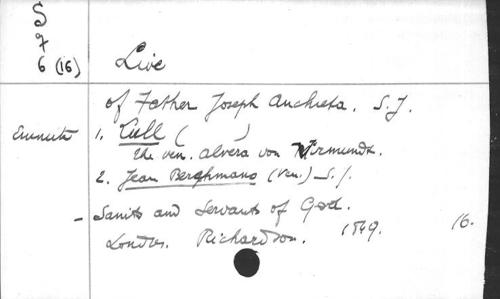 S
7
6 (16)
Live
of Father Joseph Anchieta. S.J.
1. Cull ( )
the ven. Alvera von Virmundt.
2. Jean Berghmans (Ven.) S.J.
– Saints and Servants of God.
Londres. Richardson. 1849. 16.